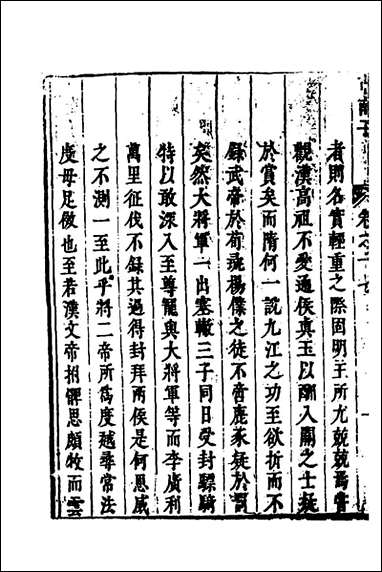 卷之十
者則名實輕重之際固明主所尤兢兢焉嘗
觀漢高祖不愛通侯真玉以酬入關之士疑
於賞矣而隋何一說九江之功至欲折而不
錄武帝於荀彘楊僕之徒不啻鹿豕疑於罰
矣然大將軍一出塞輙三子同日受封驃騎
特以敢深入至尊寵與大將軍等而李廣利
萬里征伐不錄其過得封拜兩侯是何恩威
之不測一至此乎將二帝所爲度越尋常法
度毋足倣也至若漢文帝拊髀思頗牧而雲